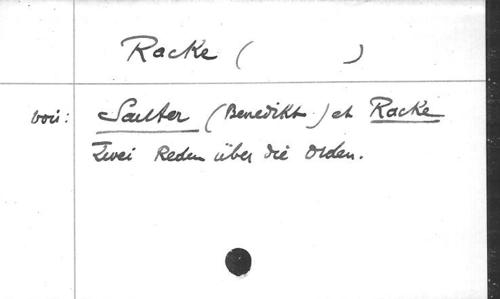 Racke ( )
voir: Sautter (Benedikt) et Racke
Zwei Reden über die Orden.